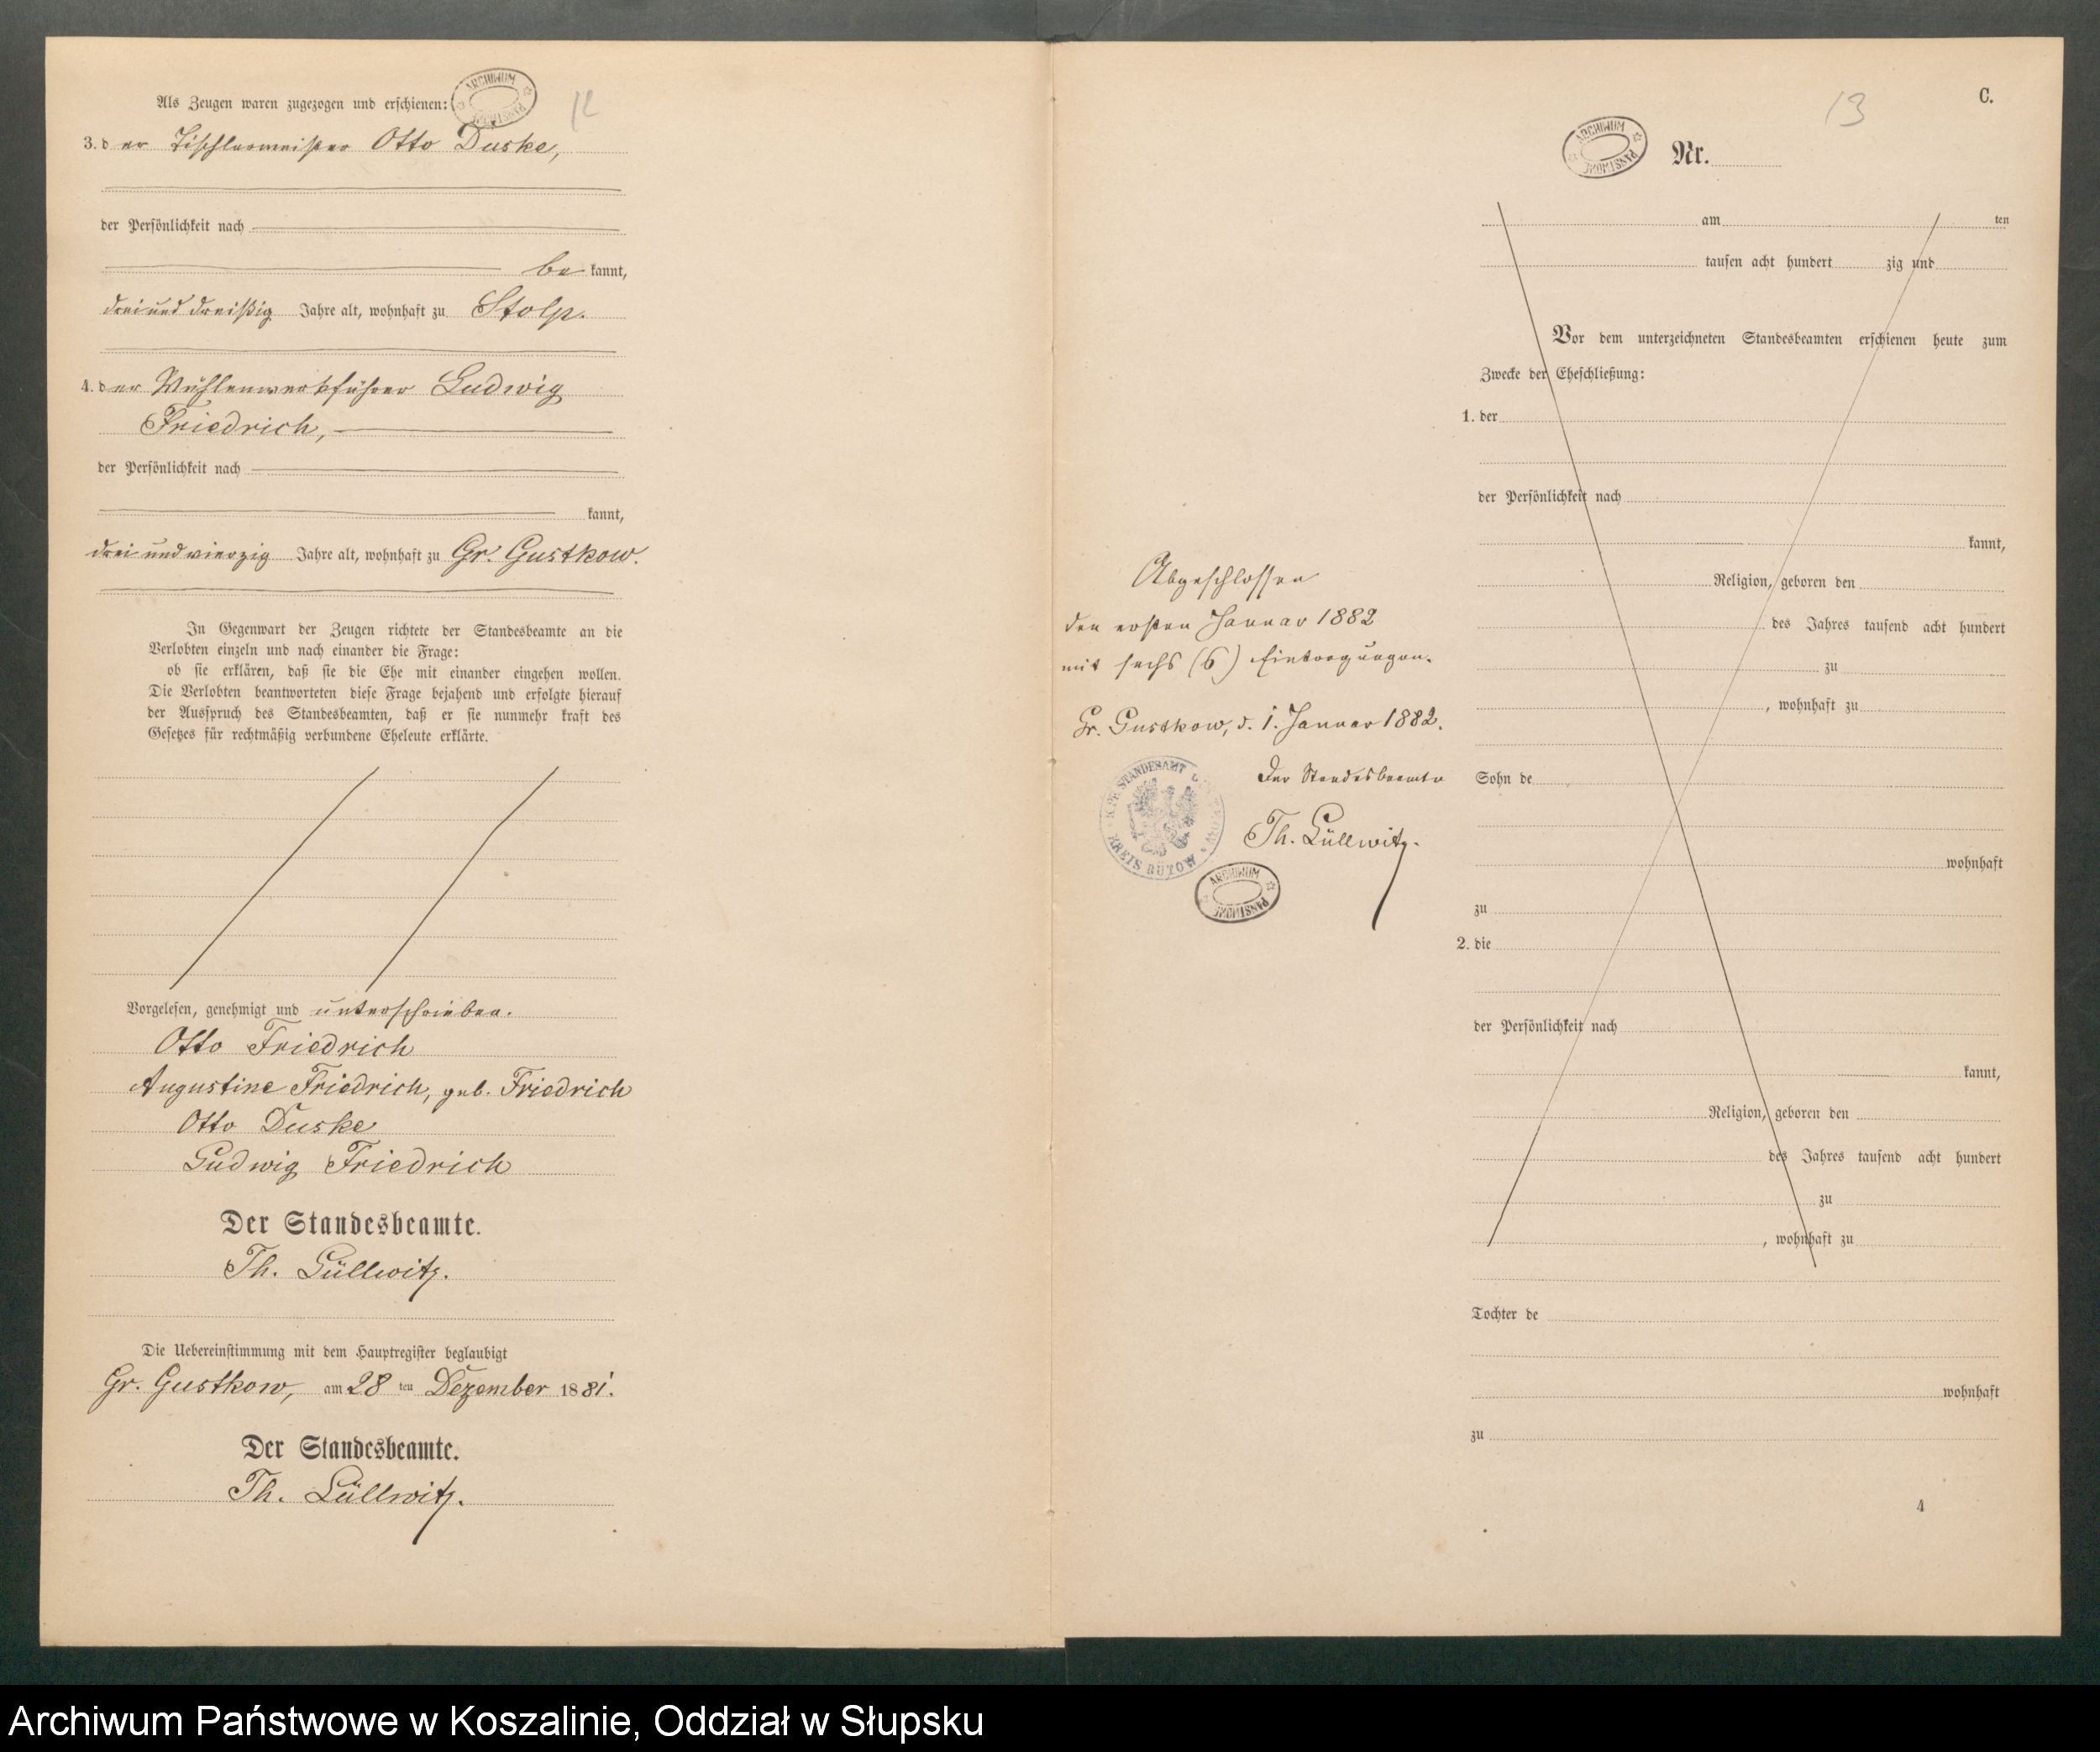 Als Zeugen waren zugezogen und erschienen:
ARCHIWUM PAŃSTWOWE
12
3. der Tischlermeister Otto Duske,
der Persönlichkeit nach
be kannt,
dreiund dreißig Jahre alt, wohnhaft zu Stolp.
4. der Mühlenwerkführer Ludwig
Friedrich,
der Persönlichkeit nach
kannt,
drei und vierzig Jahre alt, wohnhaft zu Gr. Gustkow.
In Gegenwart der Zeugen richtete der Standesbeamte an die
Verlobten einzeln und nach einander die Frage:
ob sie erklären, daß sie die Ehe mit einander eingehen wollen.
Die Verlobten beantworteten diese Frage bejahend und erfolgte hierauf
der Ausspruch des Standesbeamten, daß er sie nunmehr kraft des
Gesetzes für rechtmäßig verbundene Eheleute erklärte.
Vorgelesen, genehmigt und unterschrieben.
Otto Friedrich
Augustine Friedrich, geb. Friedrich
Otto Duske
Ludwig Friedrich
Der Standesbeamte.
Th. Lüllwitz.
Die Uebereinstimmung mit dem Hauptregister beglaubigt
Gr. Gustkow, am 28 ten Dezember 1881.
Der Standesbeamte.
Th. Lüllwitz.
Abgeschlossen
den ersten Januar 1882
mit sechs (6) Eintragungen.
Gr. Gustkow, d. 1. Januar 1882.
Der Standesbeamte
Th. Lüllwitz.
K. PR. STANDESAMT
KREIS BÜTOW
ARCHIWUM PAŃSTWOWE
13
C.
ARCHIWUM PAŃSTWOWE
Nr.
am ten
tausen acht hundert zig und
Vor dem unterzeichneten Standesbeamten erschienen heute zum
Zwecke der Eheschließung:
1. der
der Persönlichkeit nach
kannt,
Religion, geboren den
des Jahres tausend acht hundert
zu
, wohnhaft zu
Sohn de
wohnhaft
zu
2. die
der Persönlichkeit nach
kannt,
Religion, geboren den
des Jahres tausend acht hundert
zu
, wohnhaft zu
Tochter de
wohnhaft
zu
4
Archiwum Państwowe w Koszalinie, Oddział w Słupsku